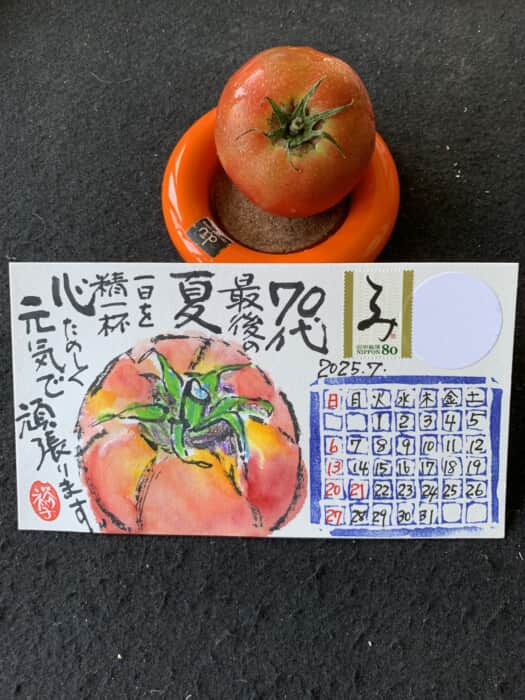 70代
最後の
夏
一日を
精一杯
心たのしく
元気で
頑張ります
日本郵便
NIPPON 80
2025.7.
日 月 火 水 木 金 土
1 2 3 4 5
6 7 8 9 10 11 12
13 14 15 16 17 18 19
20 21 22 23 24 25 26
27 28 29 30 31